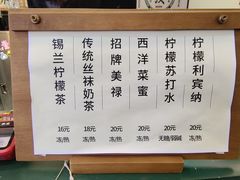 锡兰柠檬茶
16元
冻/热
传统丝袜奶茶
18元
冻/热
招牌美禄
20元
冻/热
西洋菜蜜
20元
冻/热
柠檬苏打水
20元
无糖/弱碱
柠檬利宾纳
20元
冻/热